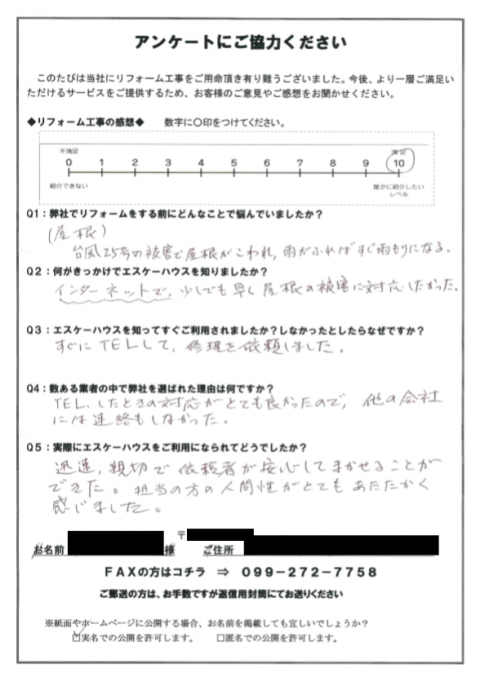 アンケートにご協力ください
このたびは当社にリフォーム工事をご用命頂き有り難うございました。今後、より一層ご満足い
ただけるサービスをご提供するため、お客様のご意見やご感想をお聞かせください。
◆リフォーム工事の感想◆ 数字に〇印をつけてください。
不満足 満足
0 1 2 3 4 5 6 7 8 9 10
紹介できない 確かに紹介したい
レベル
Q1：弊社でリフォームをする前にどんなことで悩んでいましたか？
(屋根)
台風25号の被害で屋根がこわれ,雨がふればすぐ雨もりになる.
Q2：何がきっかけでエスケーハウスを知りましたか？
インターネットで,少しでも早く屋根の被害に対応したかった.
Q3：エスケーハウスを知ってすぐご利用されましたか？しなかったとしたらなぜですか？
すぐにTELして,修理を依頼しました.
Q4：数ある業者の中で弊社を選ばれた理由は何ですか？
TEL.したときの対応がとても良かったので,他の会社
には連絡もしなかった.
Q5：実際にエスケーハウスをご利用になられてどうでしたか？
迅速,親切で依頼者が安心してまかせることが
できた。担当の方の人間性がとてもあたたかく
感じました。
〒
お名前 様 ご住所
FAXの方はコチラ ⇒ 099-272-7758
ご郵送の方は、お手数ですが返信用封筒にてお送りください
※紙面やホームページに公開する場合、お名前を掲載しても宜しいでしょうか？
☑実名での公開を許可します。 □匿名での公開を許可します。